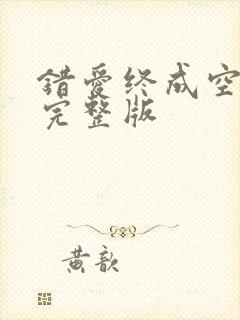 错爱终成空
完整版
黄歆